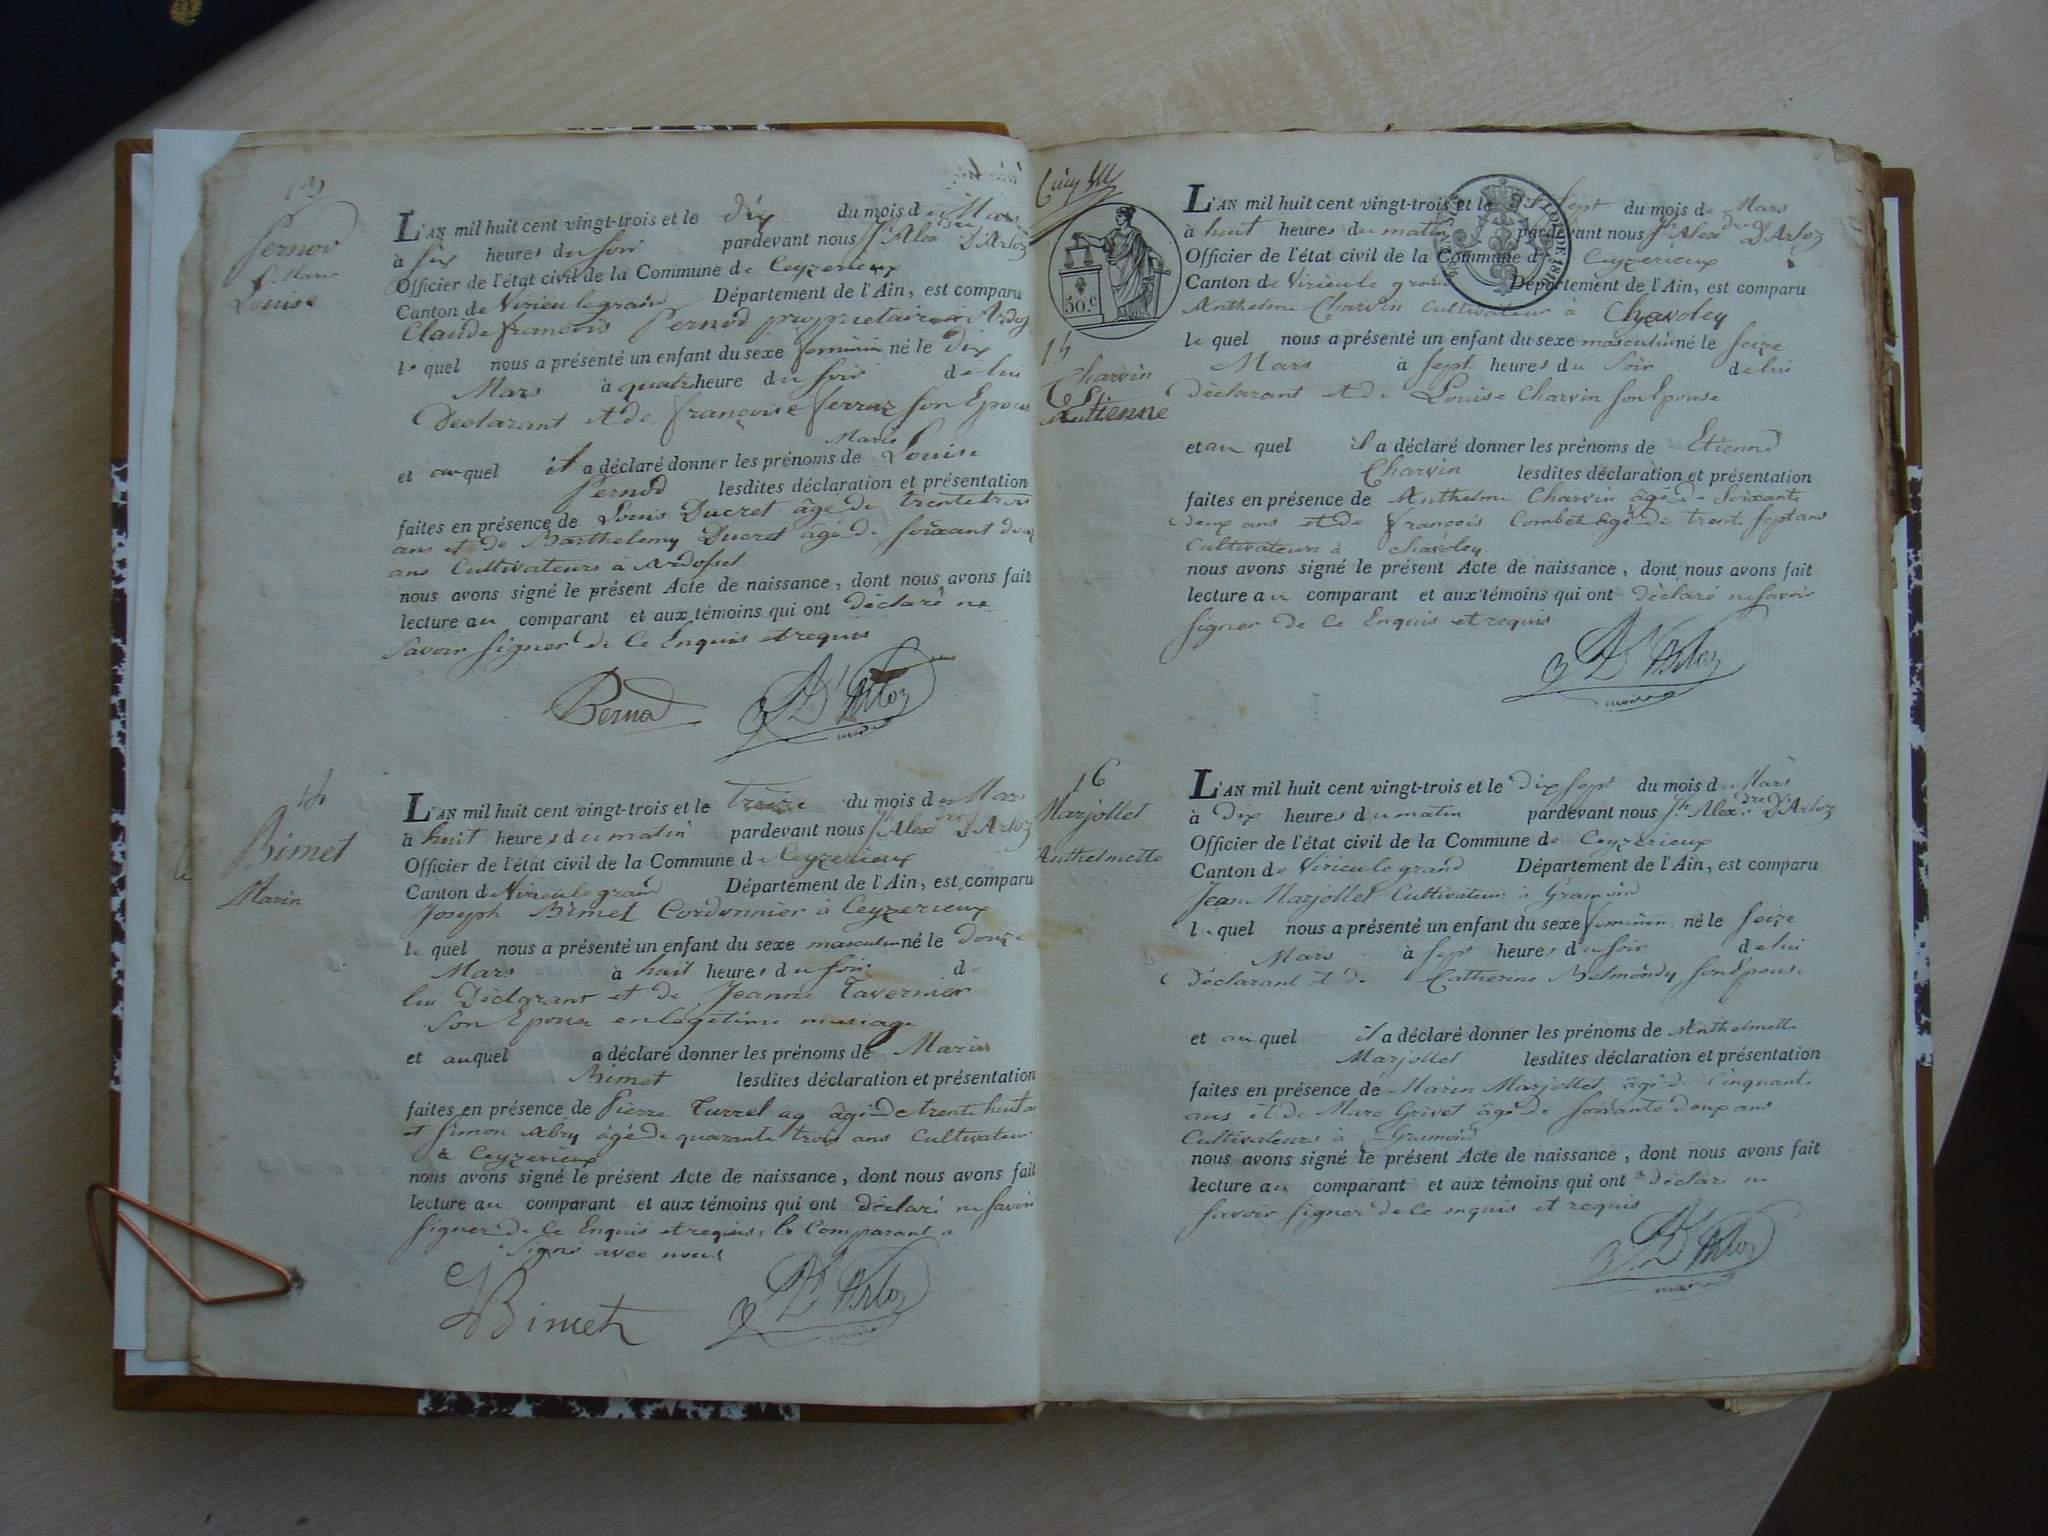 Pernod
Marie
Louise
L'AN mil huit cent vingt-trois et le dix du mois de Mars
à six heures du soir pardevant nous Jh Alexdre D'Arloz
Officier de l'état civil de la Commune de Ceyzerieux
Canton de Virieu le grand Département de l'Ain, est comparu
Claude françois Pernod propriétaire à Ardos
le quel nous a présenté un enfant du sexe feminin né le dix
Mars à quatre heure du soir de lui
Declarant et de françoise ferraz son Epouse
Marie
et au quel il a déclaré donner les prénoms de Louise
Pernod lesdites déclaration et présentation
faites en présence de Louis Ducret âgé de trente trois
ans et de Barthelemy Ducret âgé de soixant deux
ans Cultivateurs à Ardosset
nous avons signé le présent Acte de naissance, dont nous avons fait
lecture au comparant et aux témoins qui ont déclaré ne
savoir signer de ce Enquis et requis
Pernod D'Arloz
maire
14
Bimet
Marin
L'AN mil huit cent vingt-trois et le treize du mois de Mars
à huit heures du matin pardevant nous Jh Alexdre D'Arloz
Officier de l'état civil de la Commune de Ceyzerieux
Canton de Virieu le grand Département de l'Ain, est comparu
Joseph Bimet Cordonnier à Ceyzerieux
le quel nous a présenté un enfant du sexe masculin né le douze
Mars à huit heures du soir de
lui Déclarant et de Jeanne Tavernier
son Epouse en legitime mariage
et au quel a déclaré donner les prénoms de Marin
Bimet lesdites déclaration et présentation
faites en présence de Pierre Turrel âgé de trente huit
et Simon Abry âgé de quarante trois ans Cultivateur
à Ceyzerieux
nous avons signé le présent Acte de naissance, dont nous avons fait
lecture au comparant et aux témoins qui ont déclaré ne savoir
signer de ce Enquis et requis, le Comparant a
signé avec nous
JBimet D'Arloz
maire
50c
15
Charvin
Etienne
L'AN mil huit cent vingt-trois et le dix sept du mois de Mars
à huit heures du matin pardevant nous Jh Alexdre D'Arloz
Officier de l'état civil de la Commune de Ceyzerieux
Canton de Virieu le grand Département de l'Ain, est comparu
Anthelme Charvin Cultivateur à Chavoley
le quel nous a présenté un enfant du sexe masculin né le seize
Mars à sept heures du soir de lui
déclarant et de Louise Charvin son Epouse
et au quel il a déclaré donner les prénoms de Etienne
Charvin lesdites déclaration et présentation
faites en présence de Anthelme Charvin âgé de soixante
deux ans et de françois Combet âgé de trente sept ans
Cultivateurs à chavoley
nous avons signé le présent Acte de naissance, dont nous avons fait
lecture au comparant et aux témoins qui ont déclaré ne savoir
signer de ce Enquis et requis
D'Arloz
maire
16
Marjollet
Anthelmette
L'AN mil huit cent vingt-trois et le dix sept du mois de Mars
à Dix heures du matin pardevant nous Jh Alexdre D'Arloz
Officier de l'état civil de la Commune de Ceyzerieux
Canton de Virieu le grand Département de l'Ain, est comparu
Jean Marjollet Cultivateur à Gramond
le quel nous a présenté un enfant du sexe feminin né le seize
Mars à sept heures du soir de lui
Déclarant et de Catherine Belmondy son Epouse
et au quel il a déclaré donner les prénoms de Anthelmette
Marjollet lesdites déclaration et présentation
faites en présence de Marin Marjollet âgé de Cinquante
ans et de Marc Grivet âgé de soixante deux ans
Cultivateurs à Gramond
nous avons signé le présent Acte de naissance, dont nous avons fait
lecture au comparant et aux témoins qui ont déclaré ne
savoir signer de ce enquis et requis
D'Arloz
maire